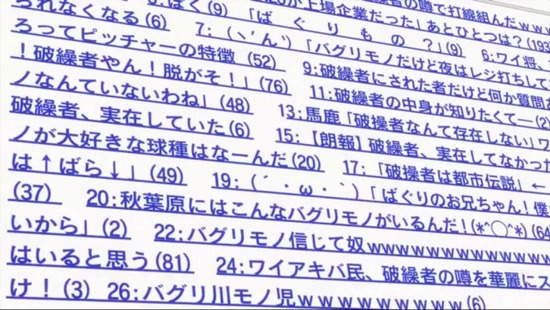 られなくなる(6) 5:ばく(9) 「ばぐりもの?」(9) 6:ワイ将、
ろってピッチャーの特徴 (52) 7:(ヽ´ん`)「バグリモノだけど夜はレジ打ちして
!破繰者やん!脱がそ!」(76) 9:破繰者にされた者だけど何か質問
ノなんていないわね」(48) 11:破繰者の中身が知りたくてー(2)
破繰者、実在していた(6) 13:馬鹿「破操者なんて存在しない」ワ
ノが大好きな球種はなーんだ(20) 15:【朗報】破繰者、実在してなかった
は↑ばら↓」(49) 17:「破操者は都市伝説」←
(37) 19:(´・ω・`)「ばぐりのお兄ちゃん!僕
20:秋葉原にはこんなバグリモノがいるんだ!(*^◯^*)(64
いから」(2) 22:バグリモノ信じて奴wwwwwwwwwwwwwww
はいると思う(81) 24:ワイアキバ民、破繰者の噂を華麗にス
け!(3) 26:バグリ川モノ児wwwwwwwww(6)